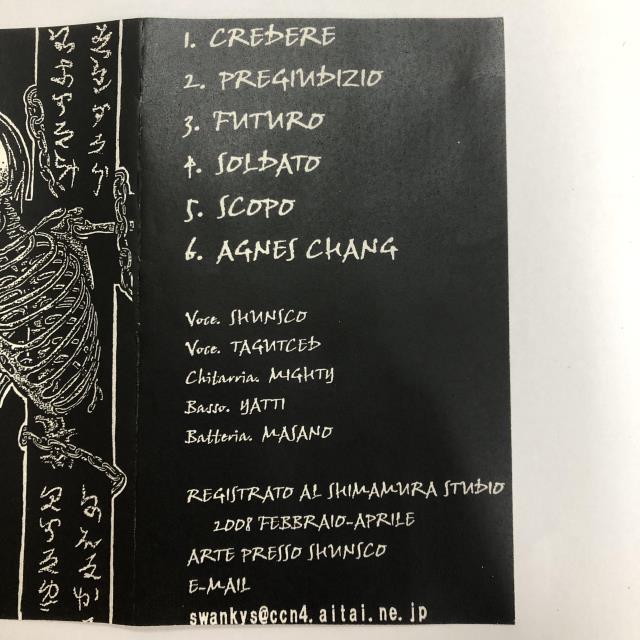 1. CREDERE
2. PREGIUDIZIO
3. FUTURO
4. SOLDATO
5. SCOPO
6. AGNES CHANG
Voce. SHUNSCO
Voce. TAGUTCED
Chitarria. MIGHTY
Basso. YATTI
Batteria. MASANO
REGISTRATO AL SHIMAMURA STUDIO
2008 FEBBRAIO-APRILE
ARTE PRESSO SHUNSCO
E-MAIL
swankys@ccn4.aitai.ne.jp